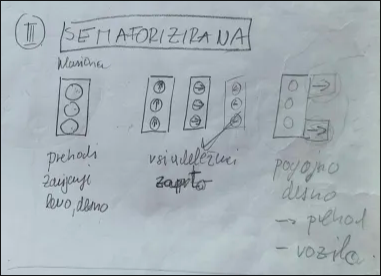 III SEMAFORIZIRANA
prehodi
zavijanje
levo, desno
vsi udeleženci
zaprto
pogojno
desno
→ prehod
- vozila